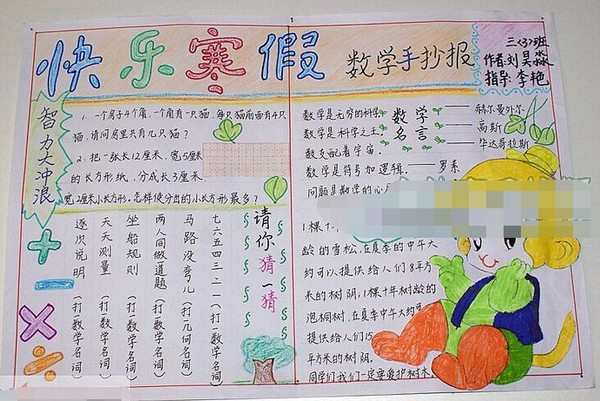 快乐寒假
数学手抄报
三〈3〉班
作者:刘昊淼
指导:李艳
智力大冲浪
1、一个房子4个角，一个角有一只猫，每只猫前面有4只
猫，请问房里共有几只猫？
2、把一张长12厘米，宽5厘米
的长方形纸，分成长3厘米，
宽2厘米小长方形。怎样使分出的小长方形最多？
请你猜一猜
七六五四三二一（打一数学名词）
马路没弯儿（打几何名词）
两人同做道题（打一数学名词）
坐船规则（打一数学名词）
天天测量（打数学名词）
逐次说明（打一数学名词）
数学名言
数学是无穷的科学 —— 赫尔曼外尔
数学是科学之王 —— 高斯
数支配着宇宙 —— 毕达哥拉斯
数学是符号加逻辑 —— 罗素
问题是数学的心
1棵十
龄的雪松，在夏季的中午大
约可以提供给人们8平方
米的树阴，1棵十年树龄的
泡桐树，在夏季中午大约
提供给人们
平方米的树阴。
同学们我们一定要爱护树木